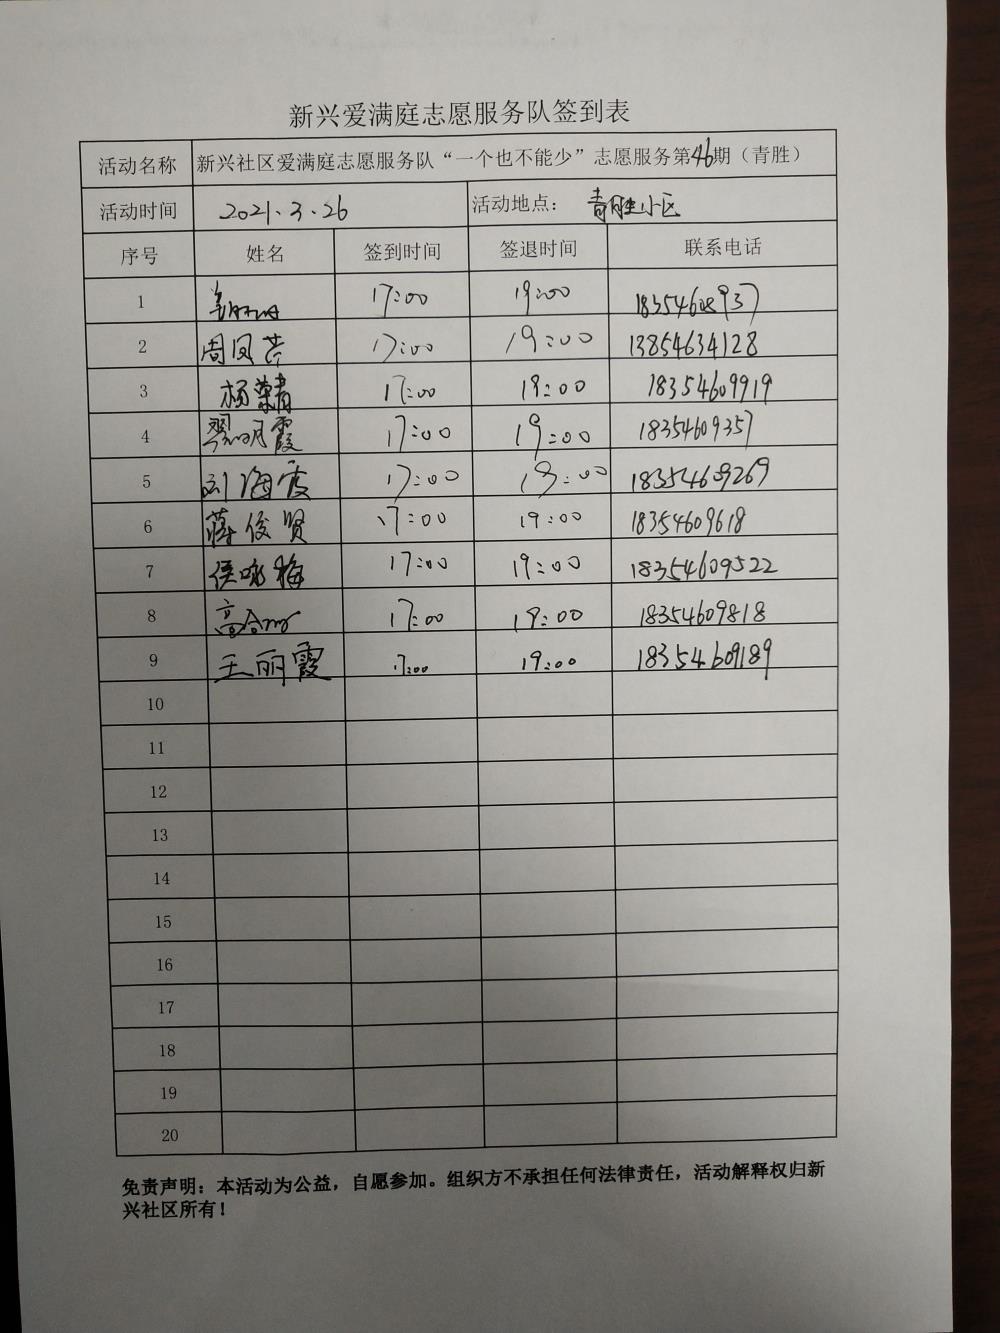 新兴爱满庭志愿服务队签到表
活动名称 新兴社区爱满庭志愿服务队“一个也不能少”志愿服务第46期（青胜）
活动时间 2021.3.26 活动地点： 青胜小区
序号 姓名 签到时间 签退时间 联系电话
1 17:00 19:00 18354608937
2 周凤芹 17:00 19:00 13854634128
3 杨荣青 17:00 19:00 18354609919
4 翟明霞 17:00 19:00 18354609357
5 刘海霞 17:00 19:00 18354609269
6 蒋俊贤 17:00 19:00 18354609618
7 侯咏梅 17:00 19:00 18354609522
8 17:00 19:00 18354609818
9 王丽霞 17:00 19:00 18354609189
10
11
12
13
14
15
16
17
18
19
20
免责声明：本活动为公益，自愿参加。组织方不承担任何法律责任，活动解释权归新
兴社区所有！